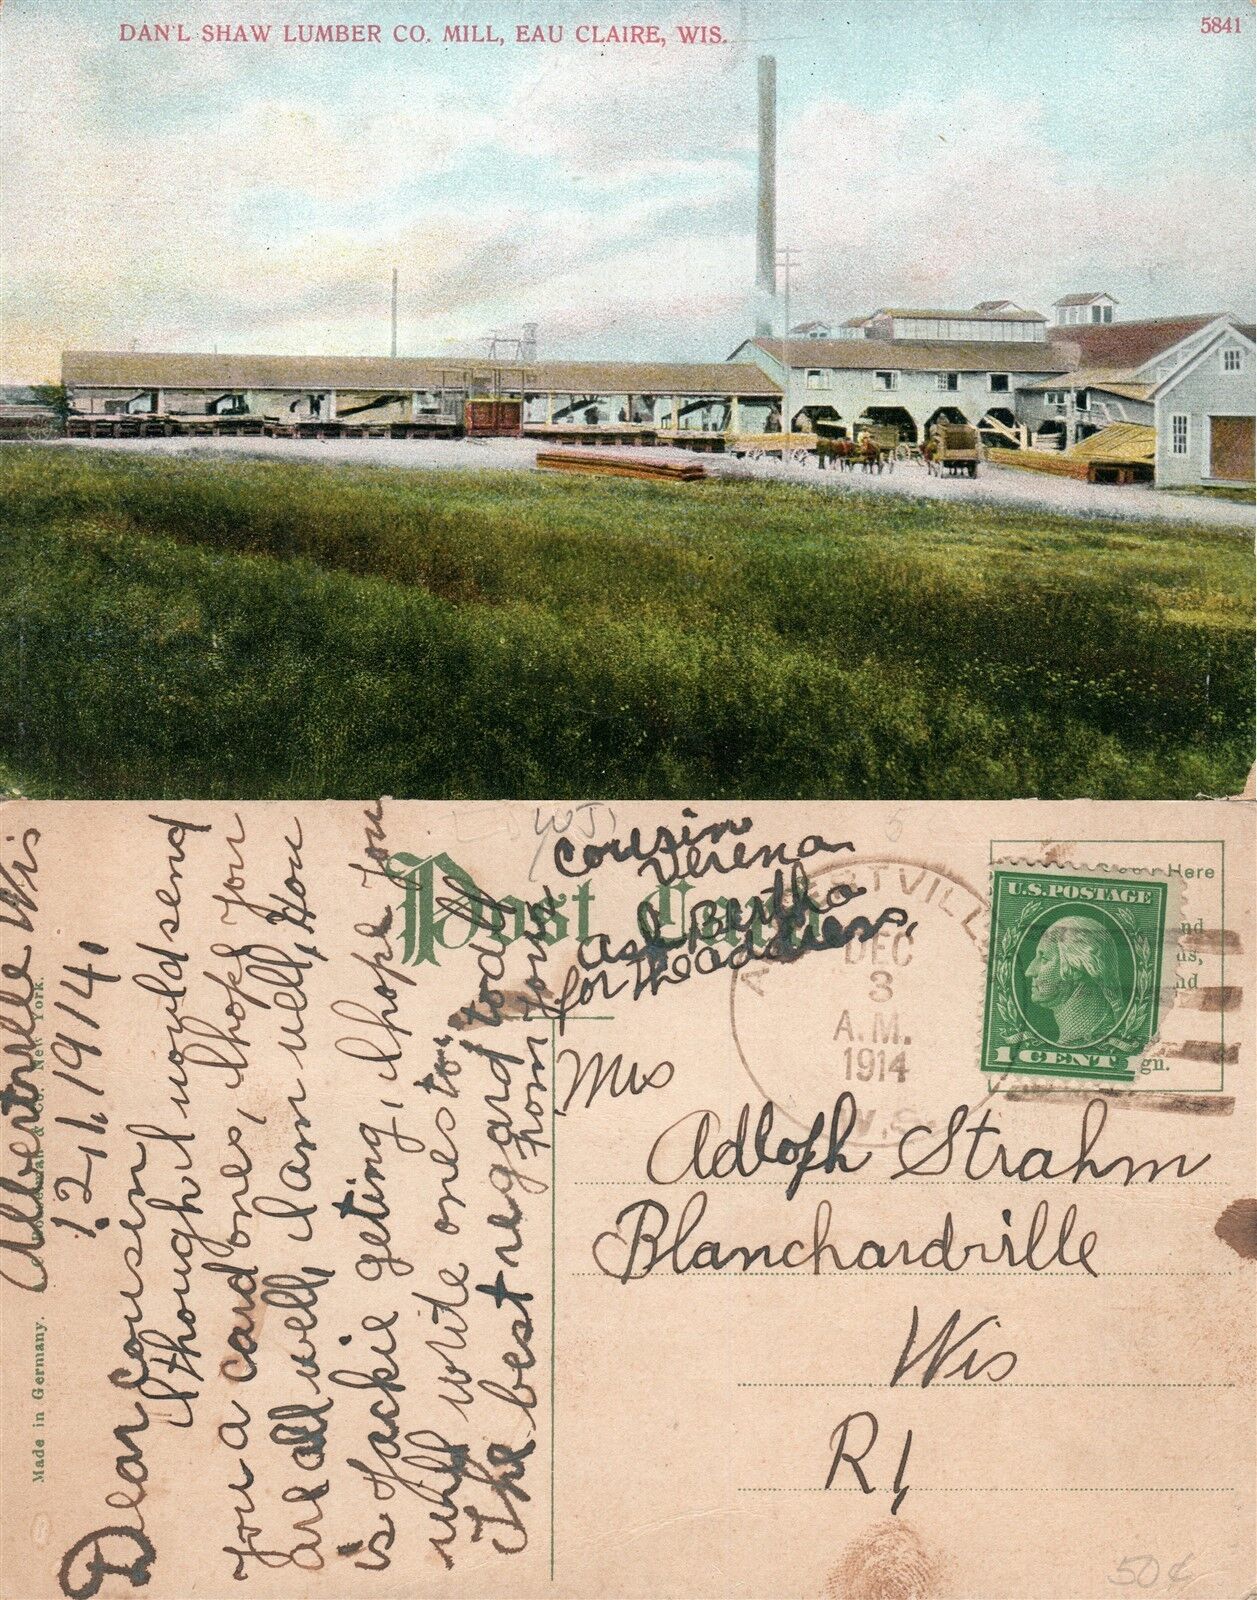 DAN'L SHAW LUMBER CO. MILL, EAU CLAIRE, WIS.
5841
Albertville Wis
12/1, 1914,
Dear Cousin
I though I would send
you a card ones, I hope you
are all well, I am well, How
is Jackie geting, I hope you
will write ones to
The best regard to all
from your
cousin
Verena.
ask Bertha
for the address,
Post Card
Made in Germany.
New York.
Here
U.S. POSTAGE
1 CENT
gn.
DEC
3
A.M.
1914
WIS.
Mis
Adloph Strahm
Blanchardville
Wis
R 1,
50¢